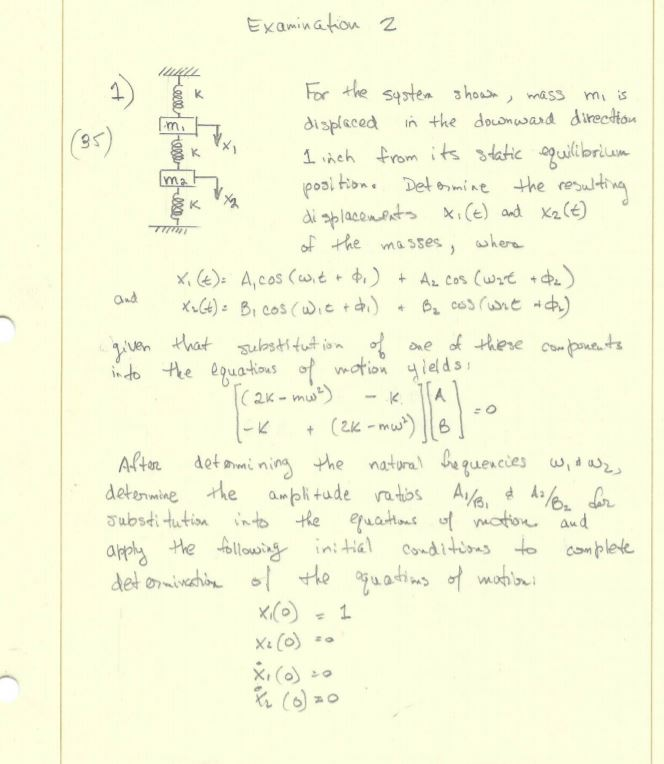 Examination 2
1) K For the system shown, mass m1 is
m1 displaced in the downward direction
(35) x1
K 1 inch from its static equilibrium
m2 position. Determine the resulting
K x2 displacements x1(t) and x2(t)
of the masses, where
x1(t) = A1 cos (ω1t + φ1) + A2 cos (ω2t + φ2)
and x2(t) = B1 cos (ω1t + φ1) + B2 cos (ω2t + φ2)
given that substitution of one of these components
into the equations of motion yields:
[(2K - mω²) - K] [A]
[-K + (2K - mω²)] [B] = 0
After determining the natural frequencies ω1 & ω2,
determine the amplitude ratios A1/B1 & A2/B2 for
substitution into the equations of motion and
apply the following initial conditions to complete
determination of the equations of motion:
x1(0) = 1
x2(0) = 0
ẋ1(0) = 0
ẋ2(0) = 0